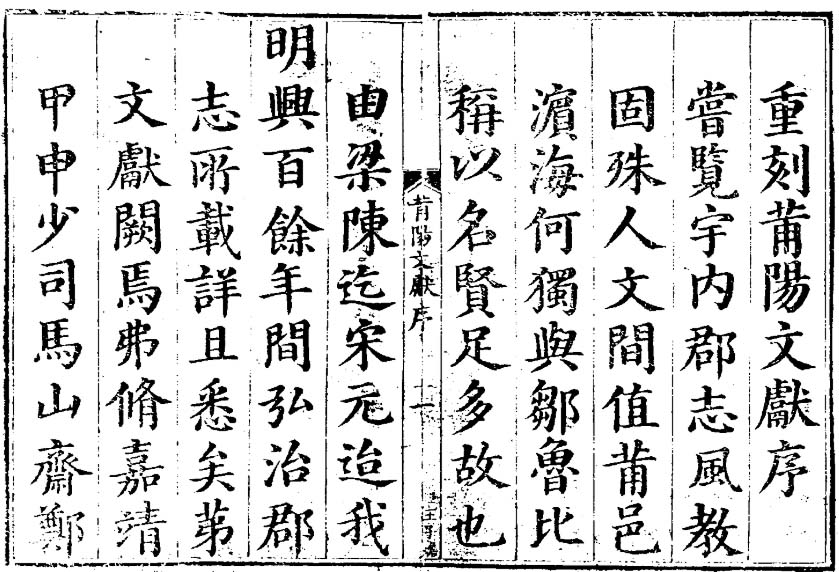 重刻莆陽文獻序
嘗覽宇内郡志風教
固殊人文間值莆邑
濵海何獨與鄒魯比
稱以名賢足多故也
莆陽文獻序
一
由梁陳迄宋元迨我
明興百餘年間弘治郡
志所載詳且悉矣苐
文獻闕焉弗脩嘉靖
甲申少司馬山齋鄭